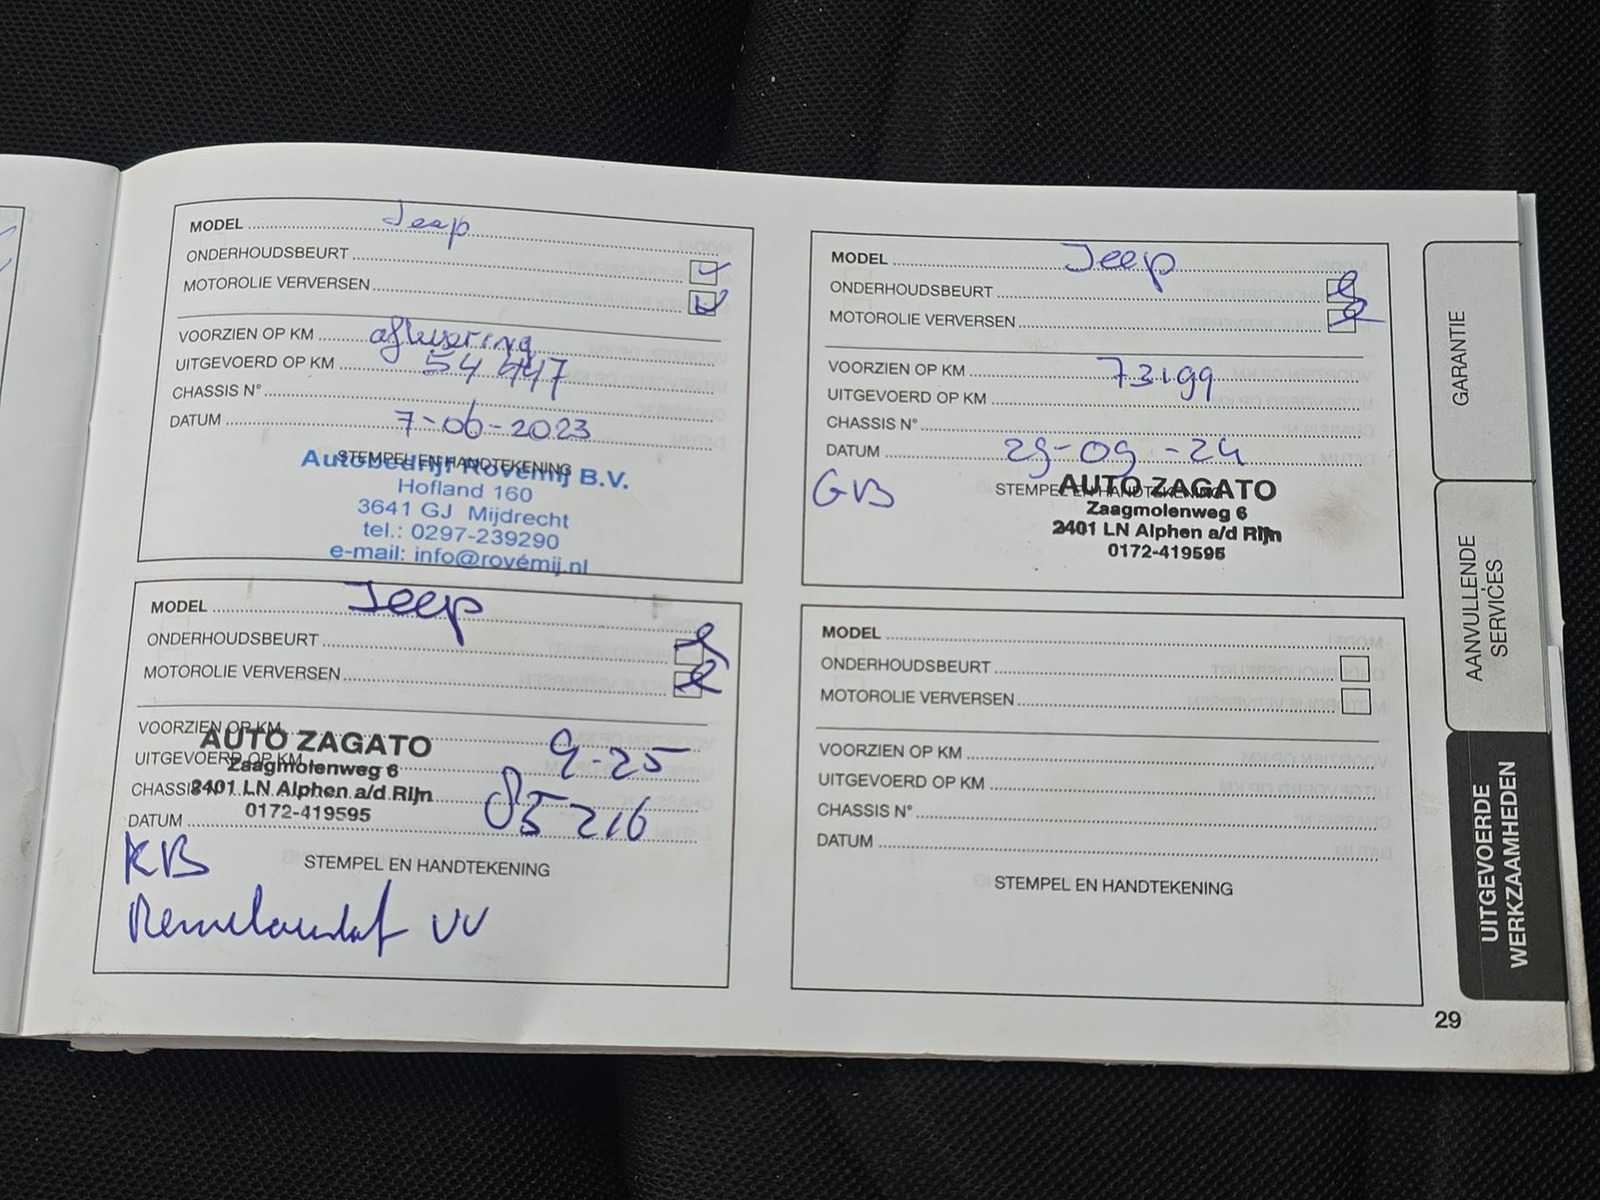 MODEL Jeep
ONDERHOUDSBEURT
MOTOROLIE VERVERSEN
VOORZIEN OP KM aflevering
UITGEVOERD OP KM 54 447
CHASSIS N°
DATUM 7-06-2023
STEMPEL EN HANDTEKENING
Autobedrijf Rovémij B.V.
Hofland 160
3641 GJ Mijdrecht
tel.: 0297-239290
e-mail: info@rovémij.nl
MODEL Jeep
ONDERHOUDSBEURT
MOTOROLIE VERVERSEN
VOORZIEN OP KM 73199
UITGEVOERD OP KM
CHASSIS N°
DATUM 29-09-24
GB
STEMPEL EN HANDTEKENING
AUTO ZAGATO
Zaagmolenweg 6
2401 LN Alphen a/d Rijn
0172-419595
MODEL Jeep
ONDERHOUDSBEURT
MOTOROLIE VERVERSEN
VOORZIEN OP KM 9-25
UITGEVOERD OP KM
CHASSIS N° 85216
DATUM
AUTO ZAGATO
Zaagmolenweg 6
2401 LN Alphen a/d Rijn
0172-419595
KB
STEMPEL EN HANDTEKENING
VV
MODEL
ONDERHOUDSBEURT
MOTOROLIE VERVERSEN
VOORZIEN OP KM
UITGEVOERD OP KM
CHASSIS N°
DATUM
STEMPEL EN HANDTEKENING
GARANTIE
AANVULLENDE
SERVICES
UITGEVOERDE
WERKZAAMHEDEN
29